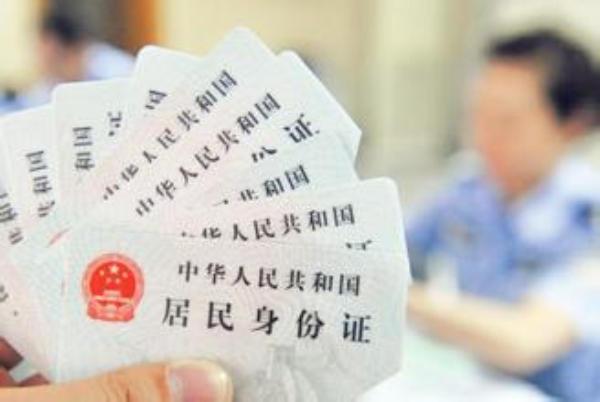 和国
中华人民共和国
中华人民共和国
份证
共和国
华人民共和国
中华人民共和国
居民身份证